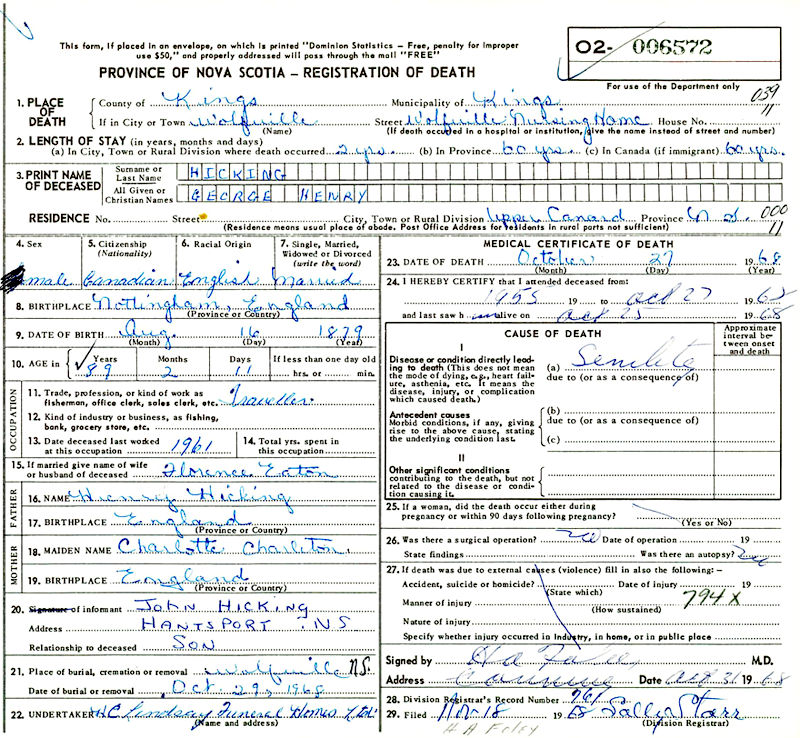 This form, if placed in an envelope, on which is printed "Dominion Statistics – Free, penalty for improper
use $50," and properly addressed will pass through the mail "FREE"
O2- 006572
PROVINCE OF NOVA SCOTIA – REGISTRATION OF DEATH
For use of the Department only
039
11
1. PLACE OF DEATH
County of Kings Municipality of Kings
If in City or Town Wolfville Street Wolfville Nursing Home House No.
(Name) (If death occurred in a hospital or institution, give the name instead of street and number)
2. LENGTH OF STAY (in years, months and days)
(a) In City, Town or Rural Division where death occurred 2 yrs. (b) In Province 60 yrs. (c) In Canada (if immigrant) 60 yrs.
3. PRINT NAME OF DECEASED
Surname or Last Name HICKING
All Given or Christian Names GEORGE HENRY
RESIDENCE No. Street City, Town or Rural Division Upper Canard Province N.S.
000
11
(Residence means usual place of abode. Post Office Address for residents in rural parts not sufficient)
4. Sex 5. Citizenship (Nationality) 6. Racial Origin 7. Single, Married, Widowed or Divorced (write the word)
male Canadian English Married
8. BIRTHPLACE Nottingham, England
(Province or Country)
9. DATE OF BIRTH Aug. 16 1879
(Month) (Day) (Year)
10. AGE in Years Months Days If less than one day old
89 2 11 hrs. or min.
OCCUPATION
11. Trade, profession, or kind of work as
fisherman, office clerk, sales clerk, etc. Traveller
12. Kind of industry or business, as fishing,
bank, grocery store, etc.
13. Date deceased last worked at this occupation 1961 14. Total yrs. spent in this occupation
15. If married give name of wife
or husband of deceased Florence Eaton
FATHER
16. NAME Henry Hicking
17. BIRTHPLACE England
(Province or Country)
MOTHER
18. MAIDEN NAME Charlotte Charleton
19. BIRTHPLACE England
(Province or Country)
20. Signature of informant JOHN HICKING
Address HANTSPORT NS
Relationship to deceased SON
21. Place of burial, cremation or removal Wolfville N.S.
Date of burial or removal Oct. 29, 1968
22. UNDERTAKER H.C. Lindsay Funeral Homes Ltd.
(Name and address)
MEDICAL CERTIFICATE OF DEATH
23. DATE OF DEATH October 27 1968
(Month) (Day) (Year)
24. I HEREBY CERTIFY that I attended deceased from:
19 to Oct 27 19
and last saw h im alive on Oct 25 1968
CAUSE OF DEATH
Approximate interval between onset and death
I
Disease or condition directly leading to death (This does not mean the mode of dying, e.g., heart failure, asthenia, etc. It means the disease, injury, or complication which caused death.)
(a) Senility
due to (or as a consequence of)
Antecedent causes
Morbid conditions, if any, giving rise to the above cause, stating the underlying condition last.
(b)
due to (or as a consequence of)
(c)
II
Other significant conditions
contributing to the death, but not related to the disease or condition causing it.
25. If a woman, did the death occur either during
pregnancy or within 90 days following pregnancy?
(Yes or No)
26. Was there a surgical operation? no Date of operation 19
State findings Was there an autopsy? no
27. If death was due to external causes (violence) fill in also the following: –
Accident, suicide or homicide? Date of injury 19
(State which)
Manner of injury 794X
(How sustained)
Nature of injury
Specify whether injury occurred in industry, in home, or in public place
Signed by M.D.
Address Canning Date Oct 31 1968
28. Division Registrar's Record Number 767
29. Filed Nov-18 19 68 Sally Starr
(Division Registrar)
H A Foley